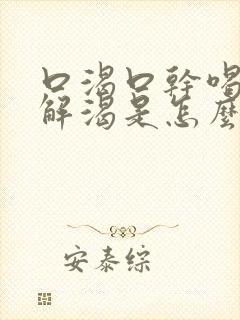 口渴口幹喝
解渴是怎麼
安泰綜